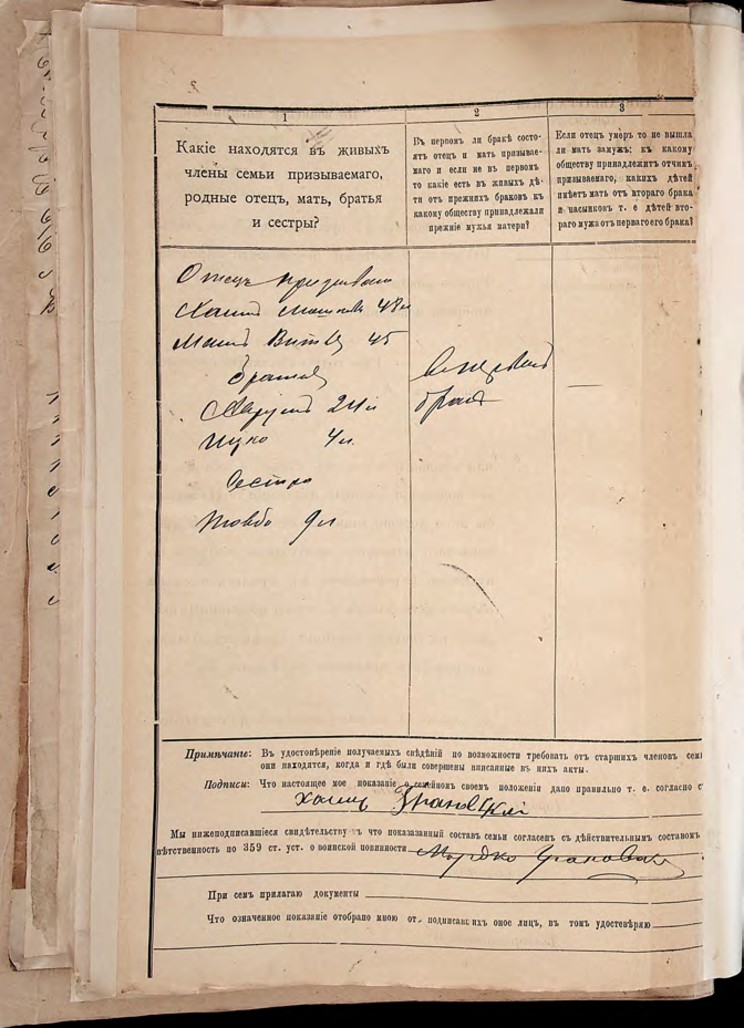 1
2
3
Какіе находятся въ живыхъ
члены семьи призываемаго,
родные отецъ, мать, братья
и сестры?
Въ первомъ ли бракѣ состо-
ятъ отецъ и мать призывае-
маго и если не въ первомъ
то какіе есть въ живыхъ дѣ-
ти отъ прежнихъ браковъ къ
какому обществу принадлежали
прежніе мужья матери?
Если отецъ умеръ то не вышла
ли мать замужъ; къ какому
обществу принадлежитъ отчимъ
призываемаго, какихъ дѣтей
имѣетъ мать отъ втораго брака
и пасынковъ т. е дѣтей вто-
раго мужа отъ перваго его брака?
Отецъ
48
Витля 45
Братья
24
4
Сестра
9
Примѣчаніе: Въ удостовѣреніе получаемыхъ свѣдѣній по возможности требовать отъ старшихъ членовъ
они находятся, когда и гдѣ были совершены вписанные въ нихъ акты.
Подписи: Что настоящее мое показаніе о семейномъ своемъ положеніи дано правильно т. е. согласно
Мы нижеподписавшіеся свидѣтельству ъ что показазанный составъ семьи согласенъ съ дѣйствительнымъ составомъ
вѣтственность по 359 ст. уст. о воинской повинности
При семъ прилагаю документы
Что означенное показаніе отобрано мною от подписавшихъ оное лицъ, въ томъ удостовѣряю